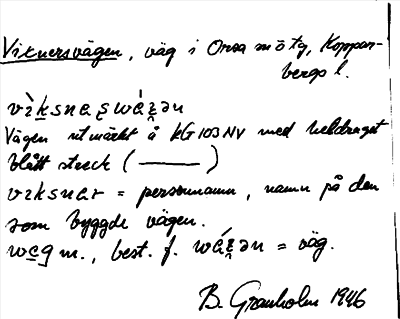 Viknersvägen, väg i Orsa m ö tg, Koppar-
bergs l.
vìksnaʂwá̀ʐən
Vägen utmärkt å KG103NV med heldraget
blått streck (———)
viksnar = personnamn, namn på den
som byggde vägen.
wɛg m., best. f. wá̀ʐən = väg.
B. Granholm 1946